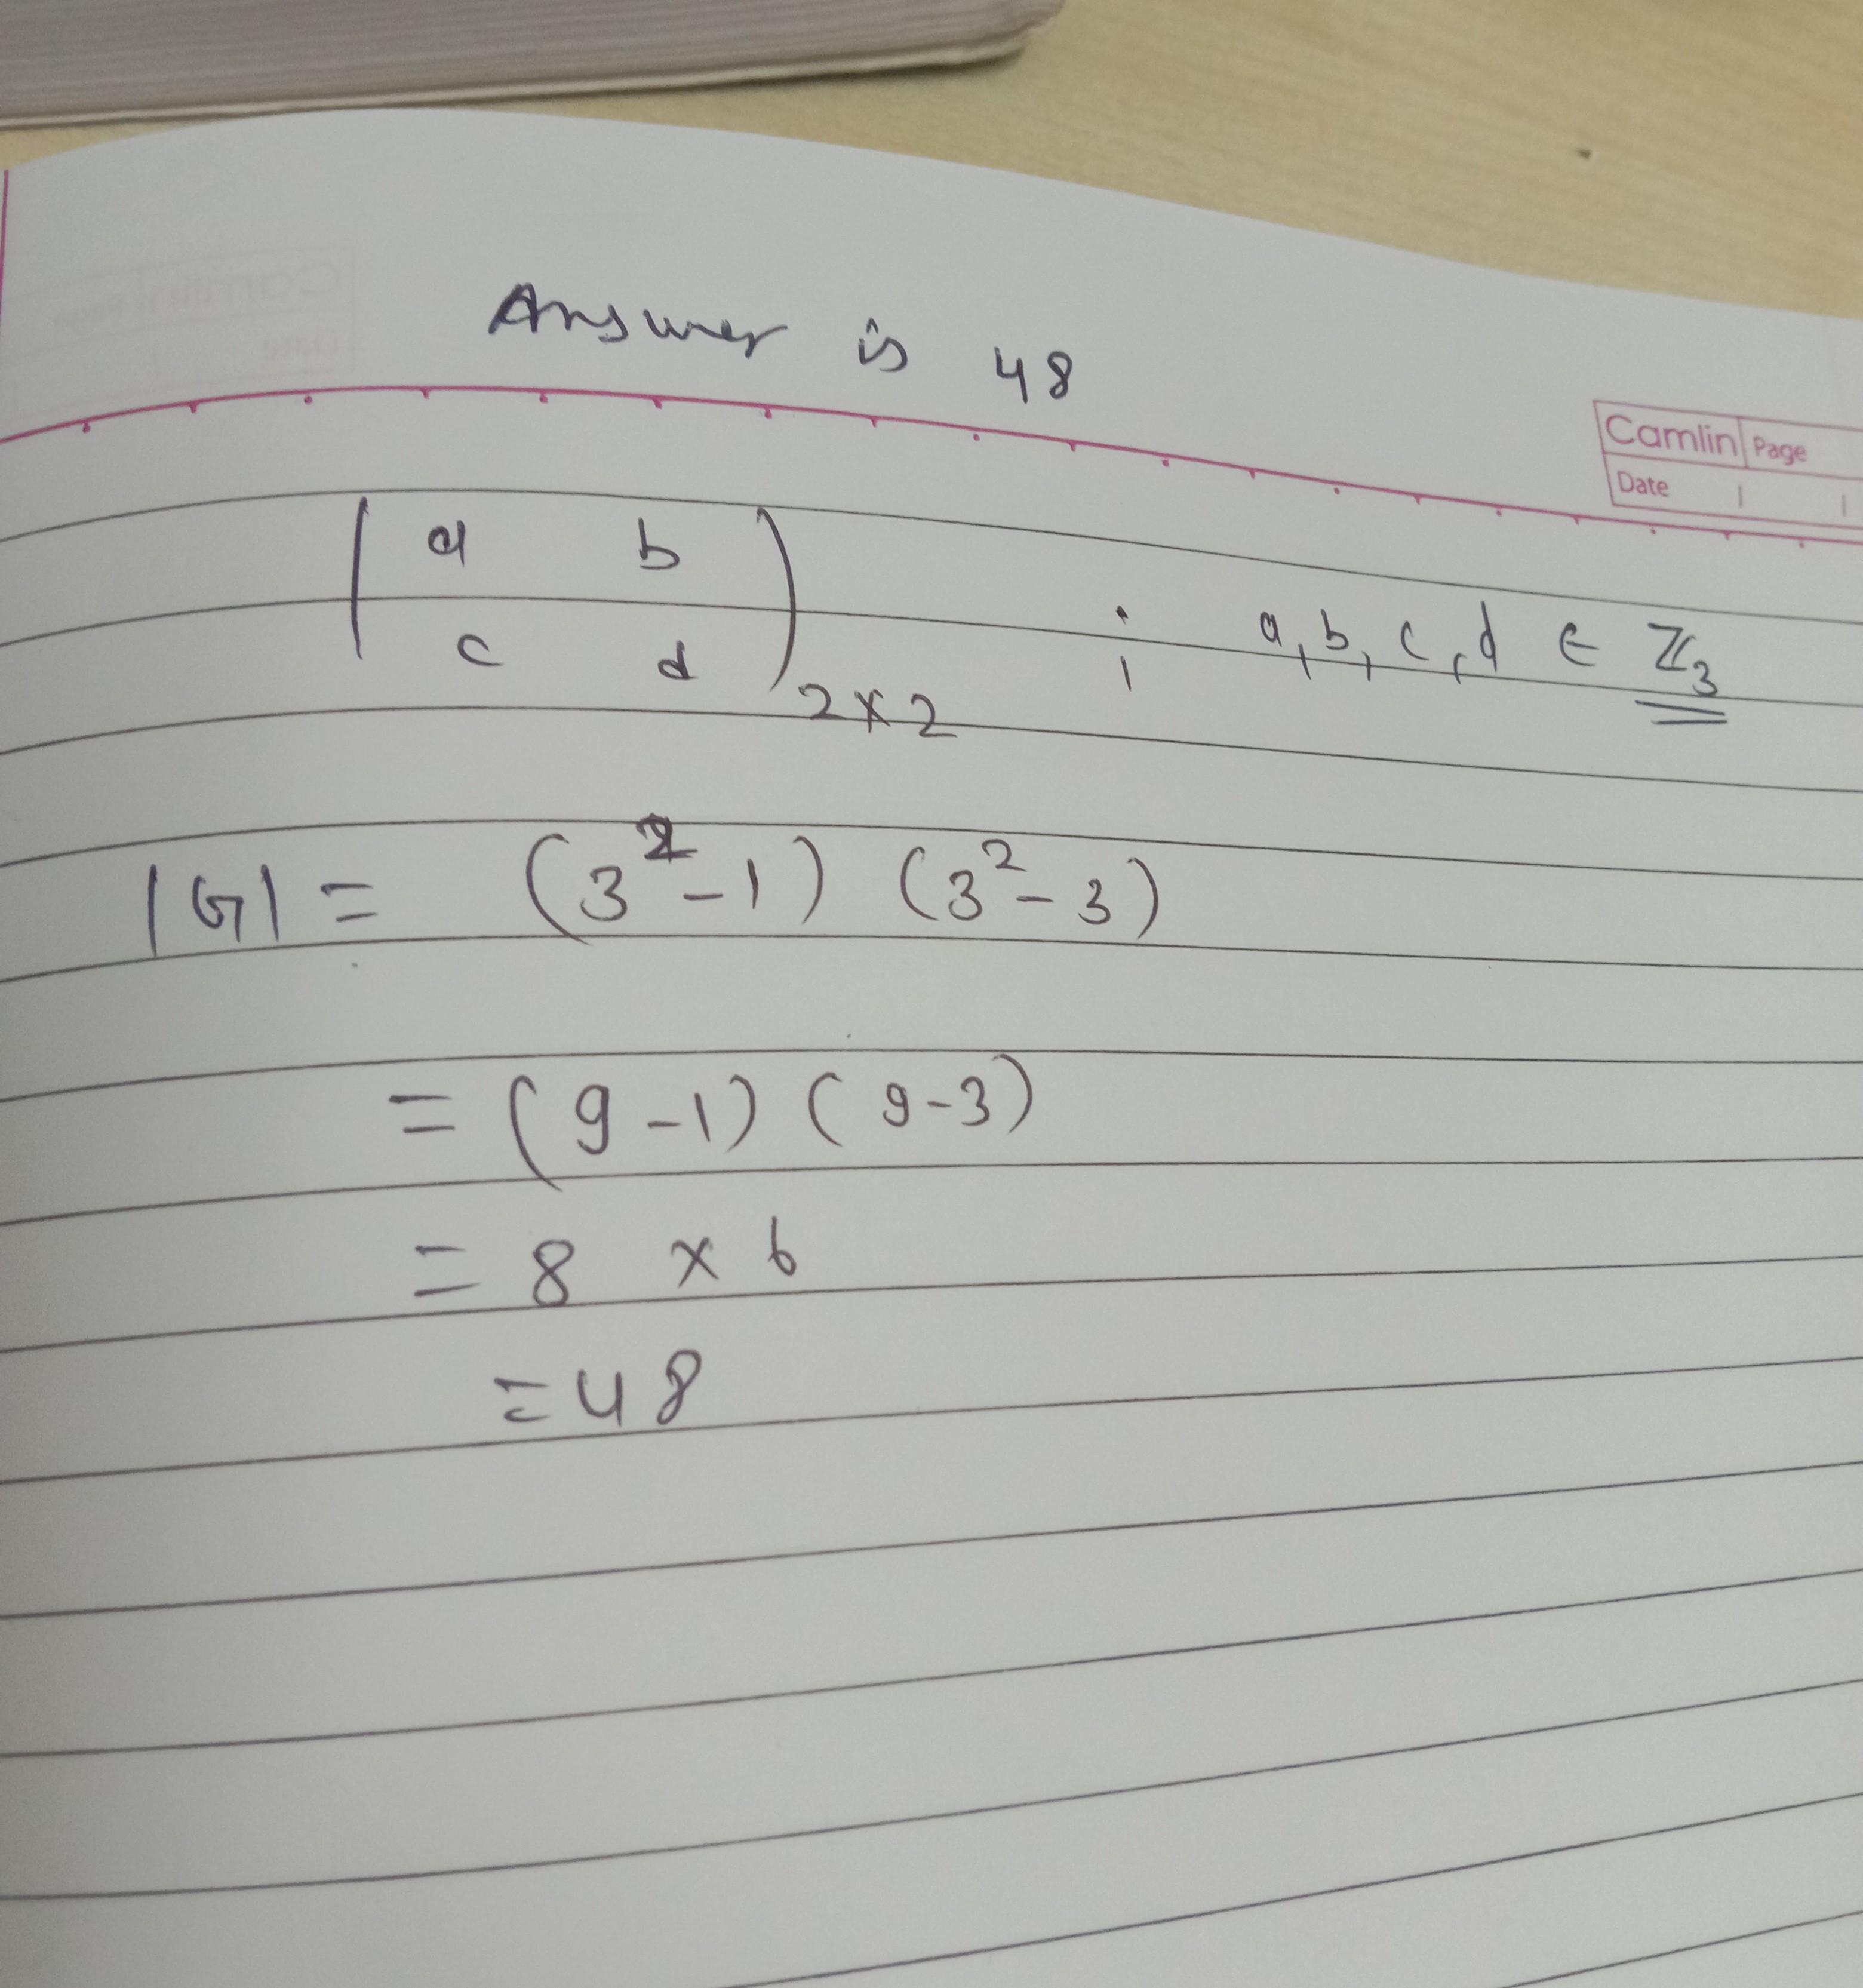 Answer is 48
Camlin Page
Date
( a b
c d ) 2×2 ; a, b, c, d ∈ ℤ3
|G| = (3²-1) (3²-3)
= (9-1) (9-3)
= 8 × 6
= 48